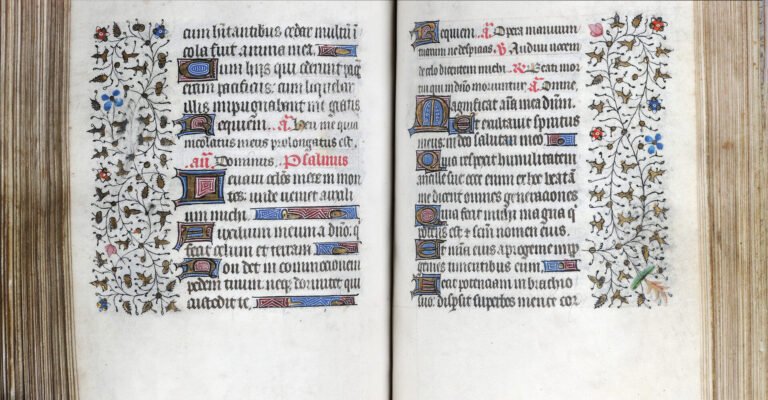 cum hītantibus cedar multū ī
cola fuit anima mea.
Cum hiis qui oderunt pacē
eram pacificus: cum loquebar
illis impugnabant me gratis
Requiem. añ. Heu me quia
incolatus meus prolongatus est.
añ. Dominus. Psalmus
Levavi oculos meos in mon
tes: unde veniet auxili
um michi.
Auxilium meum a dño: q̄
fecit celum et terram
Non det in commocionem
pedem tuum: neqꝫ dormitet qui
custodit te.
Requiem. añ. Opera manuum
tuarum ne despicias. ℣ Audivi vocem
de celo dicentem michi. ℟ Beati mor
tui qui in dño moriuntur. añ. Omne.
Magnificat aīa mea dñm.
Et exultavit spiritus
meus: in deo salutari meo
Quia respexit humilitatem
ancille sue: ecce enim ex hoc beatā
me dicent omnes generaciones
Quia fecit michi magna q̄
potens est: et scm̄ nomen eius.
Et mīa eius a progenie in pro
genies timentibus eum.
Fecit potenciam in brachio
suo: dispsit superbos mente cor